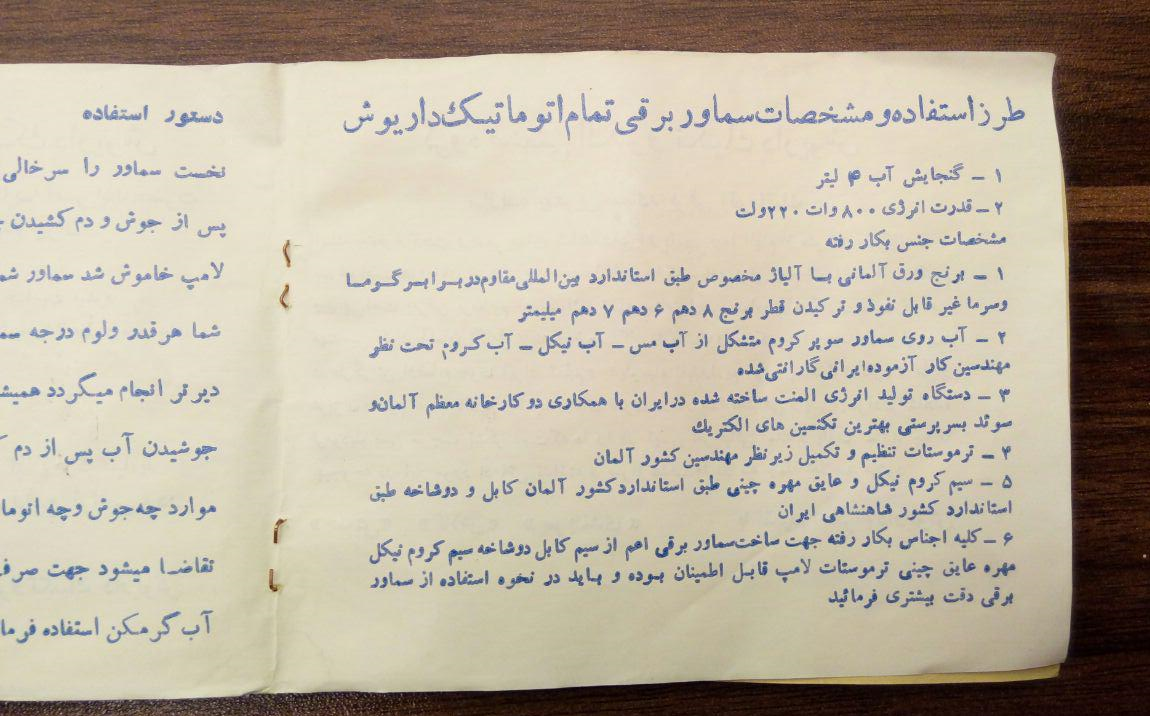 طرز استفاده و مشخصات سماور برقی تمام اتوماتیک داریوش
۱ – گنجایش آب ۴ لیتر
۲ – قدرت انرژی ۸۰۰ وات ۲۲۰ ولت
مشخصات جنس بکار رفته
۱ – برنج ورق آلمانی بـا آلیاژ مخصوص طبق استاندارد بین‌المللی مقاوم در بـرابـر گـرمـا
وسرما غیر قابل نفوذ و ترکیدن قطر برنج ۸ دهم ۶ دهم ۷ دهم میلیمتر
۲ – آب روی سماور سوپر کروم متشکل از آب مس – آب نیکل – آب کـروم تحت نظر
مهندسین کار آزموده ایرانی گارانتی شده
۳ – دستگاه تولید انرژی المنت ساخته شده در ایران با همکاری دو کارخانه معظم آلمان و
سوئد بسرپرستی بهترین تکنسین های الکتریک
۴ – ترموستات تنظیم و تکمیل زیر نظر مهندسین کشور آلمان
۵ – سیم کروم نیکل و عایق مهره چینی طبق استاندارد کشور آلمان کابل و دوشاخه طبق
استاندارد کشور شاهنشاهی ایران
۶ – کلیه اجناس بکار رفته جهت ساخت سماور برقی اعم از سیم کابل دوشاخه سیم کروم نیکل
مهره عایق چینی ترموستات لامپ قابـل اطمینان بـوده و بـاید در نحوه استفاده از سماور
برقی دقت بیشتری فرمائید
دستور استفاده
نخست سماور را سرخالی
پس از جوش و دم کشیدن
لامپ خاموش شد سماور شم
شما هرقدر ولوم درجه سم
دیرتر انجام میگردد همیش
جوشیدن آب پس از دم
موارد چه جوش وچه اتوما
تقاضـا میشود جهت صرف
آب گرمکن استفاده فرما